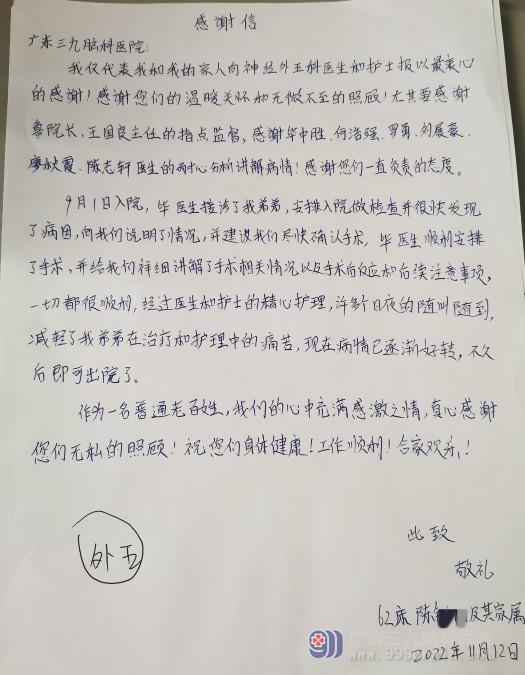 感谢信
广东三九脑科医院:
我仅代表我和我的家人向神经外五科医生和护士报以最衷心
的感谢!感谢您们的温暖关怀和无微不至的照顾!尤其要感谢
鲁院长、王国良主任的指点监督,感谢华中胜、何浩强、罗勇、刘展豪、
廖秋霞、陈志轩医生的耐心分析讲解病情!感谢您们一直负责的态度。
9月1日入院,毕医生接诊了我弟弟,安排入院做检查并很快发现
了病因,向我们说明了情况,并建议我们尽快确认手术,毕医生顺利安排
了手术,并给我们详细讲解了手术相关情况以及手术后反应和后续注意事项,
一切都很顺利,经过医生和护士的精心护理,许多个日夜的随叫随到,
减轻了我弟弟在治疗和护理中的痛苦,现在病情已逐渐好转,不久
后即可出院了。
作为一名普通老百姓,我们的心中充满感激之情,真心感谢
您们无私的照顾!祝您们身体健康!工作顺利!合家欢乐!
此致
外五
敬礼
62床 陈 及其家属
2022年11月12日
广东三九脑科医院
www.999